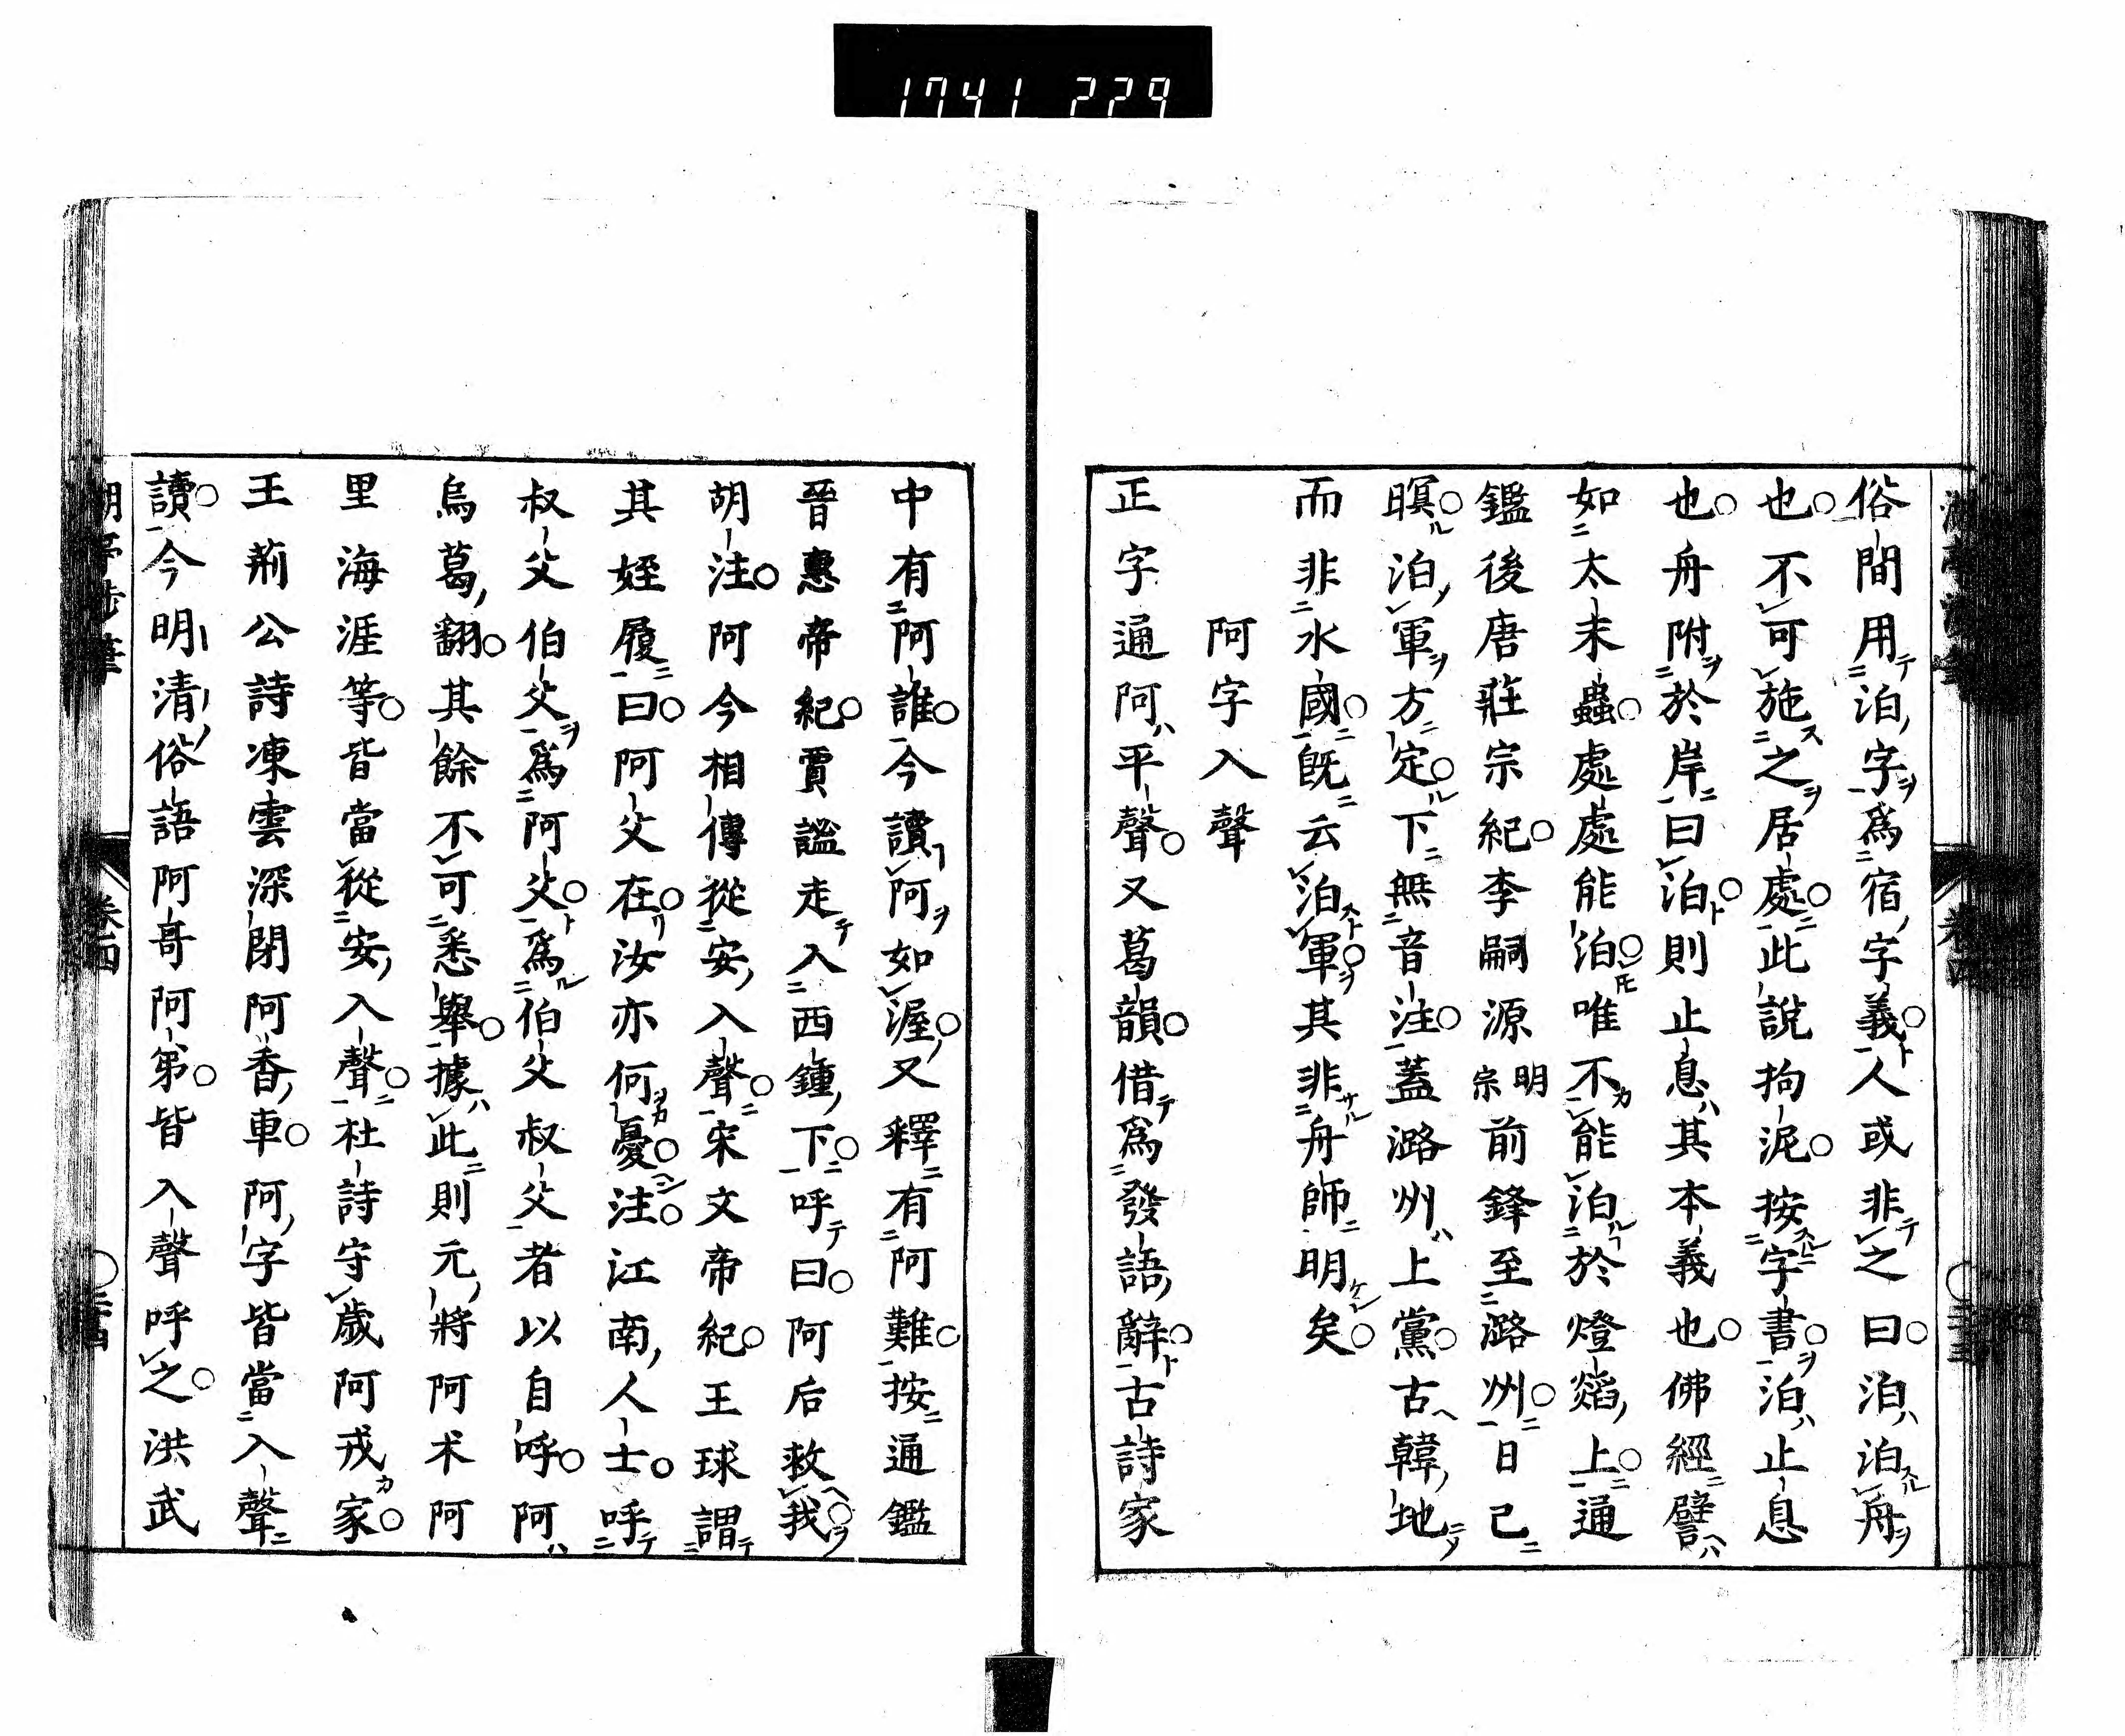 1741 229
俗間用泊字爲宿字義人或非之曰泊泊舟
也不可施之居處此説拘泥按字書泊止息
也舟附於岸曰泊則止息其本義也佛經譬
如太末蟲處處能泊唯不能泊於燈燄上通
鑑後唐莊宗紀李嗣源明宗前鋒至潞州日已
暝泊軍方定下無音注蓋潞州上黨古韓地
而非水國既云泊軍其非舟師明矣
阿字入聲
正字通阿平聲又葛韻借爲發語辭古詩家
中有阿誰今讀阿如渥又釋有阿難按通鑑
晉惠帝紀賈謐走入西鍾下呼曰阿后救我
胡注阿今相傳從安入聲宋文帝紀王球謂
其姪履曰阿父在汝亦何憂注江南人士呼
叔父伯父爲阿父爲伯父叔父者以自呼阿
烏葛翻其餘不可悉舉據此則元將阿朮阿
里海涯等皆當從安入聲杜詩守歲阿戎家
王荊公詩凍雲深閉阿香車阿字皆當入聲
讀今明清俗語阿哥阿弟皆入聲呼之洪武
卷四